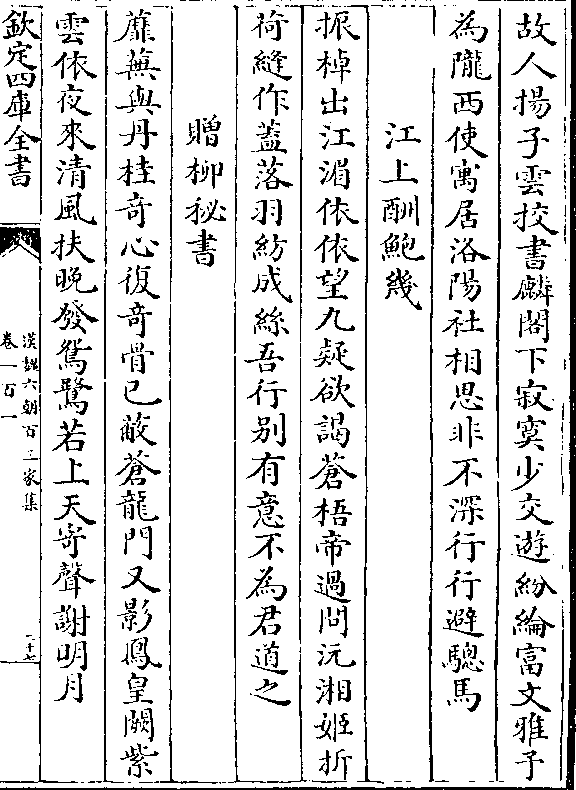 故人揚子雲挍書麟閣下寂寞少交遊紛綸富文雅子
為隴西使寓居洛陽社相思非不深行行避驄馬
江上酬鮑幾
振棹出江湄依依望九疑欲謁蒼梧帝過問沅湘姬折
荷縫作蓋落羽紡成絲吾行别有意不為君道之
贈柳秘書
蘼蕪與丹桂竒心復竒骨已蔽蒼龍門又影鳳皇闕紫
雲依夜來清風扶晚發鴛鷺若上天寄聲謝明月
欽定四庫全書
漢魏六朝百三家集
卷一百一
二十七